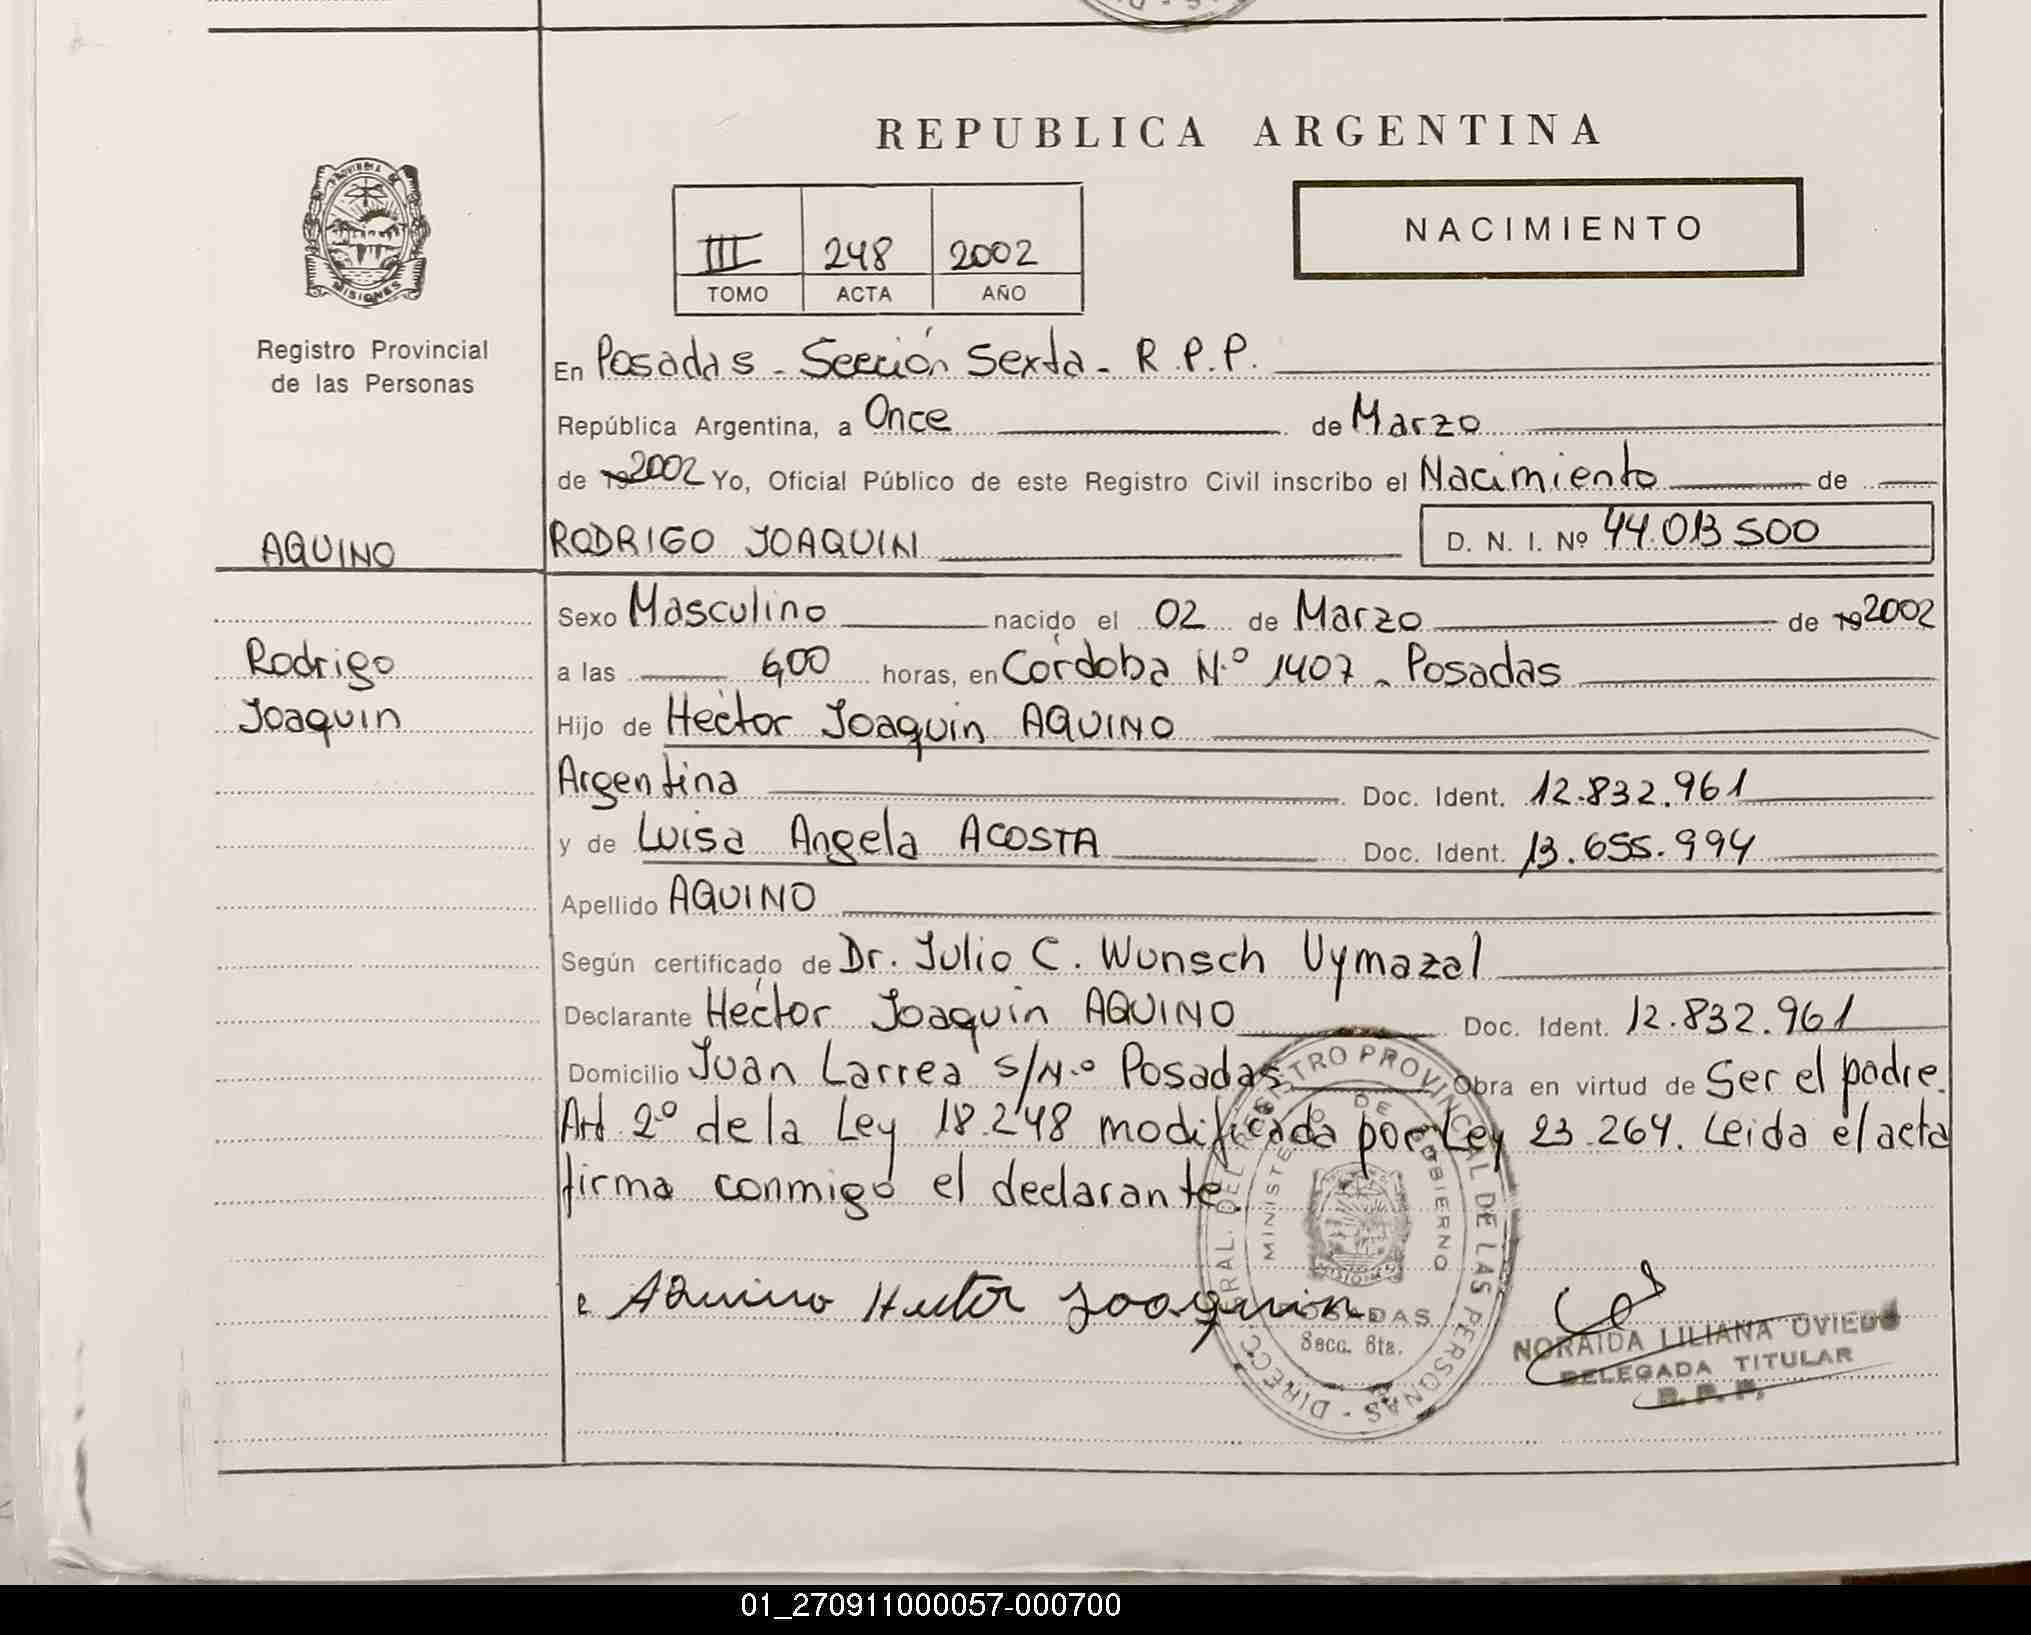 REPUBLICA ARGENTINA
PROVINCIA DE
MISIONES
III 248 2002
TOMO ACTA AÑO
NACIMIENTO
Registro Provincial
de las Personas
En Posadas - Sección Sexta - R.P.P.
República Argentina, a Once de Marzo
de 19 2002 Yo, Oficial Público de este Registro Civil inscribo el Nacimiento de
AQUINO RODRIGO JOAQUIN D. N. I. Nº 44.013.500
Sexo Masculino nacido el 02 de Marzo de 19 2002
Rodrigo
a las 6,00 horas, en Córdoba N.º 1407 - Posadas
Joaquin
Hijo de Héctor Joaquin AQUINO
Argentina Doc. Ident. 12.832.961
y de Luisa Angela ACOSTA Doc. Ident. 13.655.994
Apellido AQUINO
Según certificado de Dr. Julio C. Wunsch Vymazal
Declarante Héctor Joaquin AQUINO Doc. Ident. 12.832.961
Domicilio Juan Larrea s/N.º Posadas Obra en virtud de Ser el padre.
Art 2º de la Ley 18.248 modificada por Ley 23.264. Leida el acta
firma conmigo el declarante.
Aquino Hector Joaquin
DIRECC. GRAL. DEL REGISTRO PROVINCIAL DE LAS PERSONAS -
MINISTERIO DE GOBIERNO
MISIONES
POSADAS
Secc. 6ta.
NORAIDA LILIANA OVIEDO
DELEGADA TITULAR
R. P. P.
01_270911000057-000700